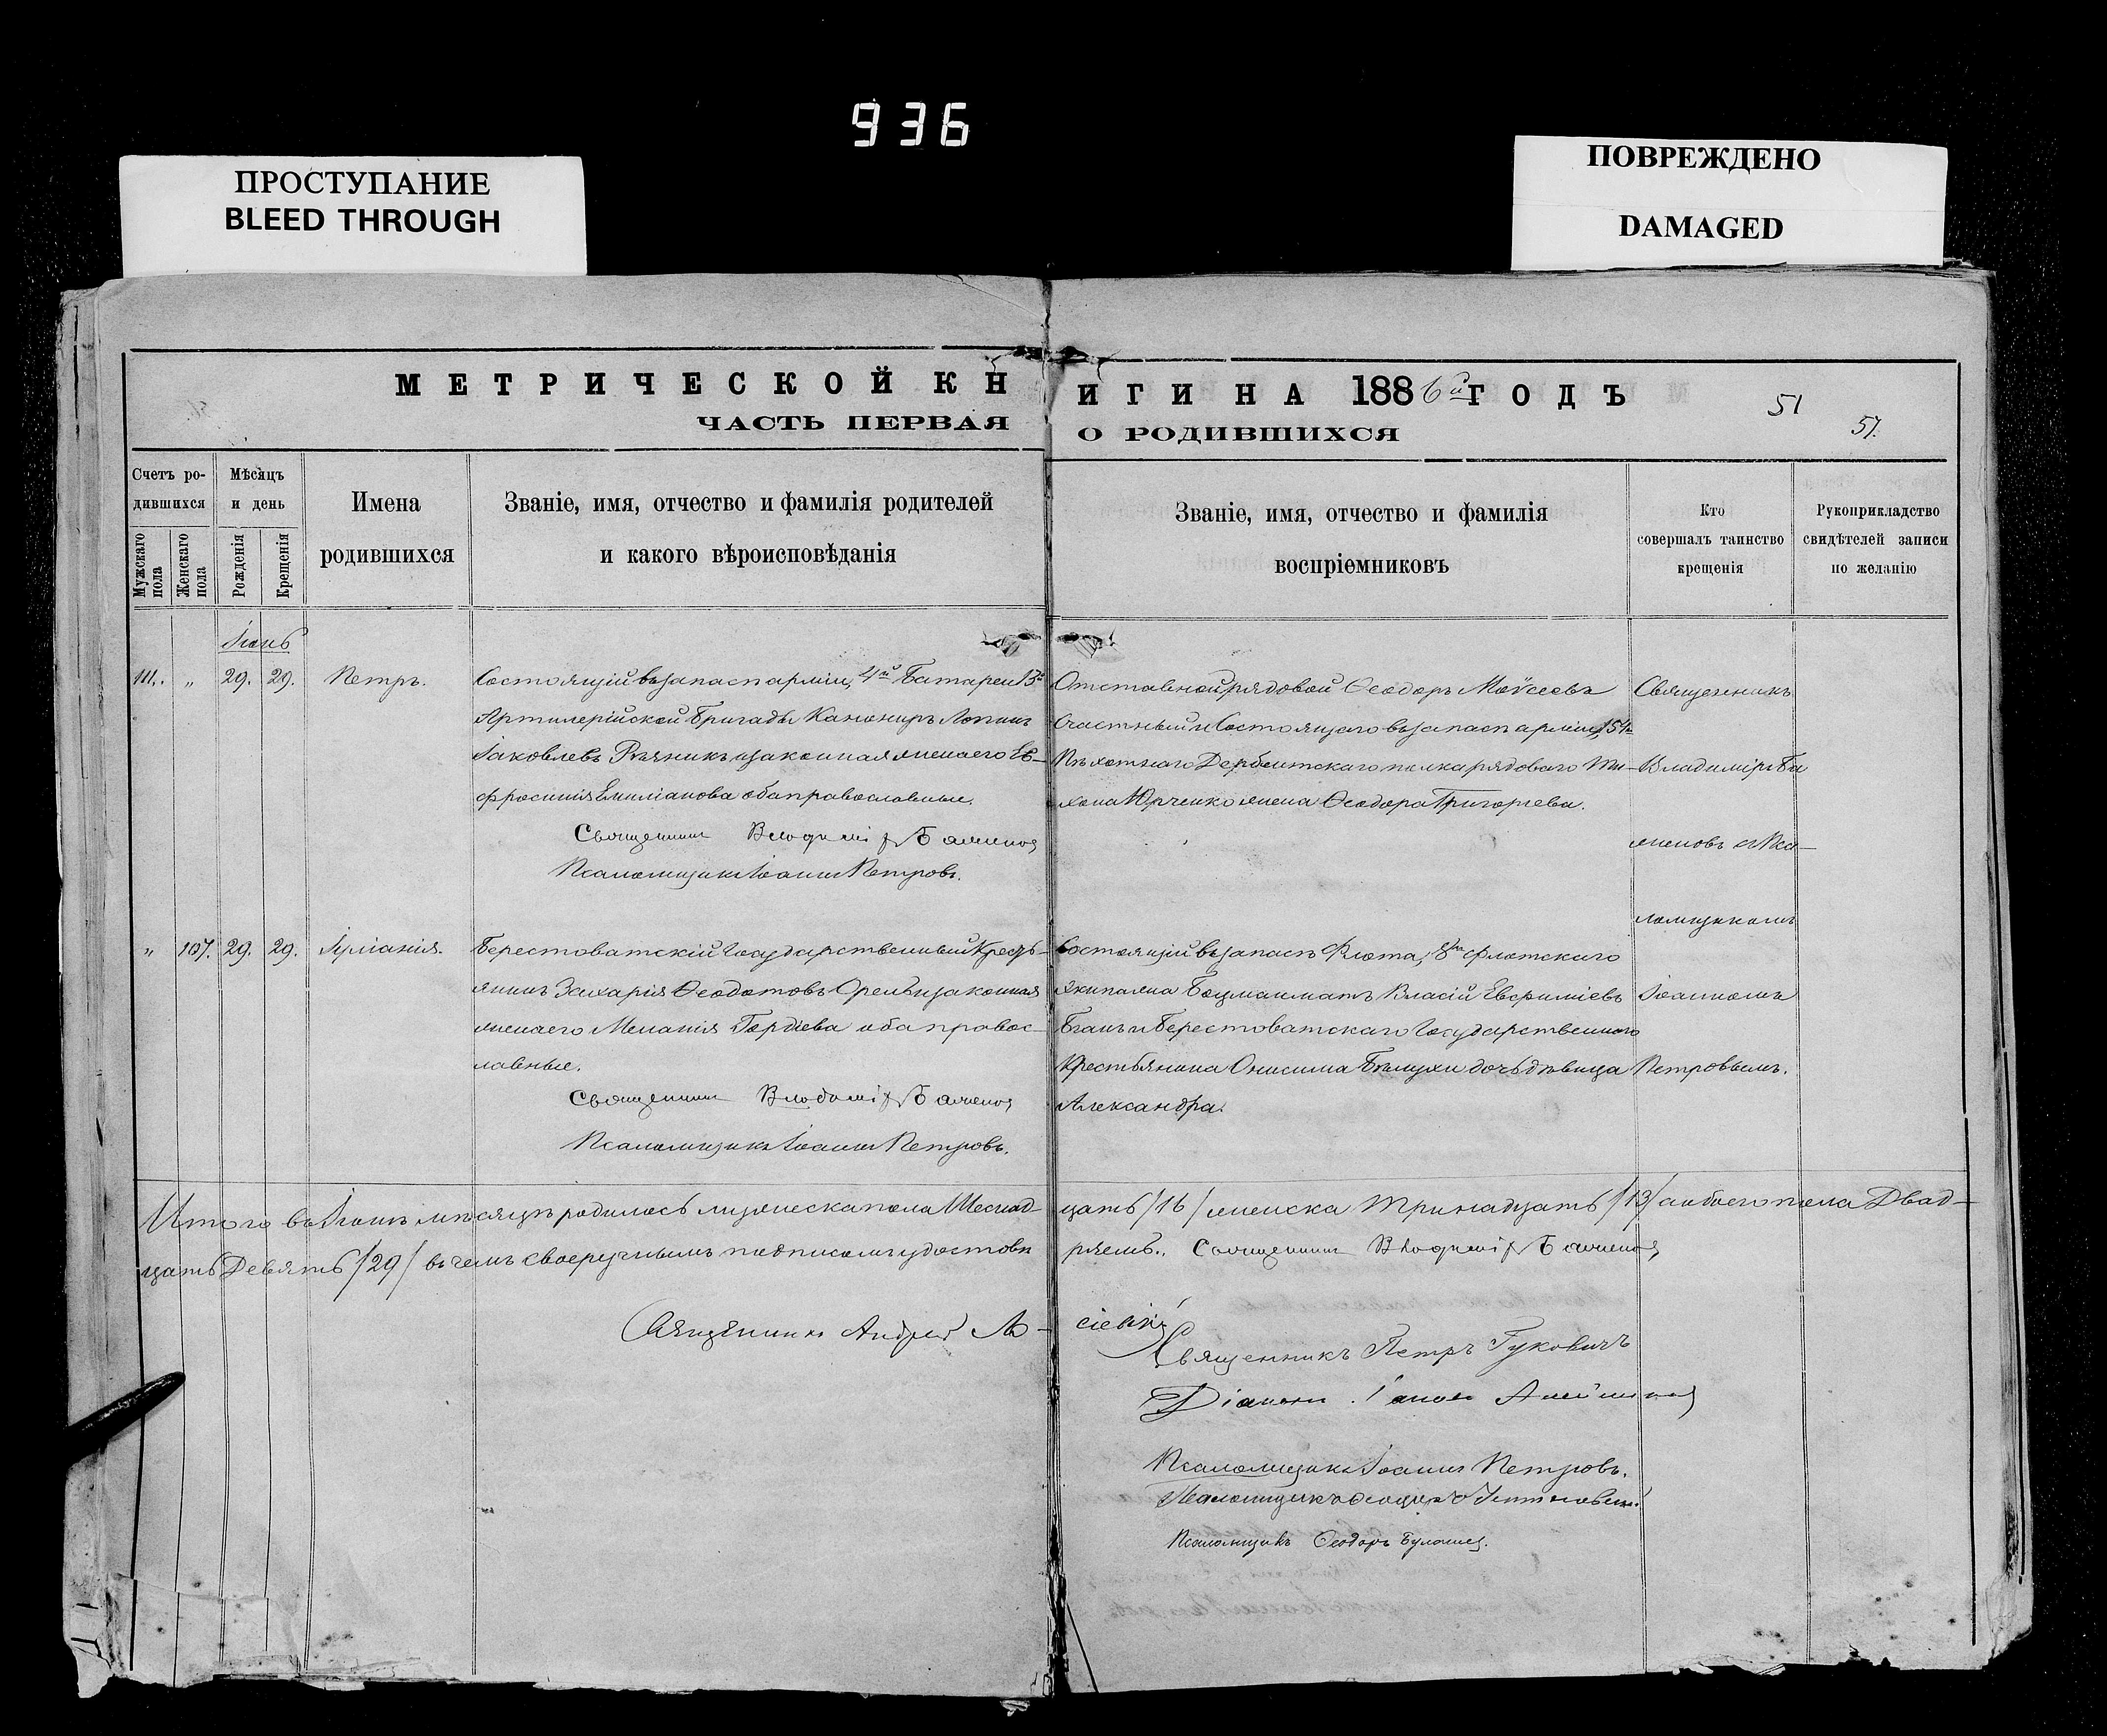 936
ПРОСТУПАНИЕ
BLEED THROUGH
ПОВРЕЖДЕНО
DAMAGED
МЕТРИЧЕСКОЙ КНИГИ НА 1886й ГОДЪ
ЧАСТЬ ПЕРВАЯ О РОДИВШИХСЯ
51
51.
Счетъ ро-
дившихся
Мужскаго пола
Женскаго пола
Мѣсяцъ
и день
Рожденія
Крещенія
Имена
родившихся
Званіе, имя, отчество и фамилія родителей
и какого вѣроисповѣданія
Званіе, имя, отчество и фамилія
воспріемниковъ
Кто
совершалъ таинство
крещенія
Рукоприкладство
свидѣтелей записи
по желанію
Іюнь
111. „ 29. 29. Петръ.
Состоящій въ запасѣ арміи, 4й Батареи 13й
Артилерійской Бригады Канониръ Логинъ
Іаковлевъ Рѣзникъ и законная жена его Ев-
фросинія Емиліанова оба православные.
Священникъ Владиміръ Баженовъ
Псаломщикъ Іоаннъ Петровъ.
Отставной рядовой Ѳеодоръ Моѵсеевъ
Счастный и Состоящаго въ запасѣ арміи, 154
Пѣхотнаго Дербентскаго полка рядоваго Ти-
хона Юрченко жена Ѳеодора Григорьева.
Священникъ
Владиміръ Ба
женовъ съ Пса-
ломщикомъ
Іоанномъ
Петровымъ.
„ 107. 29. 29. Іуліанія.
Берестоватскій Государственный Кресть-
янинъ Захарія Ѳеодотовъ Орелъ и законная
жена его Меланія Гордіева оба правос-
лавные.
Священникъ Владиміръ Баженовъ
Псаломщикъ Іоаннъ Петровъ.
Состоящій въ запасѣ Флота, 8го флотскаго
экипажа Боцманматъ Власій Евфиміевъ
Бганъ и Берестоватскаго Государственного
Крестьянина Онисима Бѣлухи дочь дѣвица
Александра.
Итого въ Іюнѣ мѣсяцѣ родилось мужеска пола Шестнад-
цать /16/ женска Тринадцать /13/ а обоего пола Двад-
цать Девять /29/ въ чемъ своеручнымъ подписомъ удостовѣ
ряемъ. Священникъ Владиміръ Баженовъ
Священникъ Андрей
Священникъ Петръ Гуковичъ
Діаконъ
Псаломщикъ Іоаннъ Петровъ.
Псаломщикъ Ѳеодоръ
Псаломщикъ Ѳеодоръ